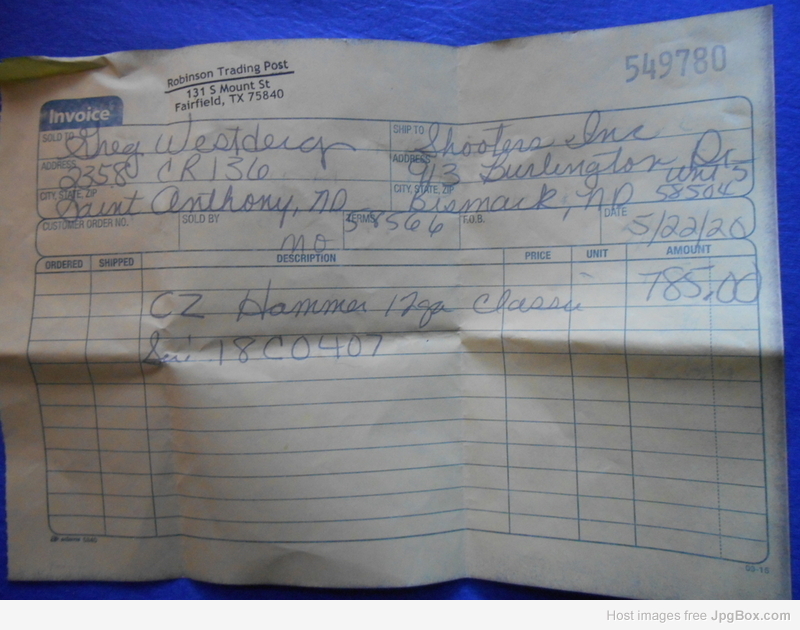 Robinson Trading Post
131 S Mount St
Fairfield, TX 75840
549780
Invoice
SOLD TO Greg
SHIP TO Shooters Inc
ADDRESS 2358 CR 136
ADDRESS 913 Burlington Dr Unit 5
CITY, STATE, ZIP Saint Anthony, ND
CITY, STATE, ZIP Bismarck, ND 58504
CUSTOMER ORDER NO.
SOLD BY
TERMS 58566
F.O.B.
DATE 5/22/20
no
ORDERED SHIPPED DESCRIPTION PRICE UNIT AMOUNT
CZ Hammer 12ga Classic 785.00
18C0407
Host images free JpgBox.com